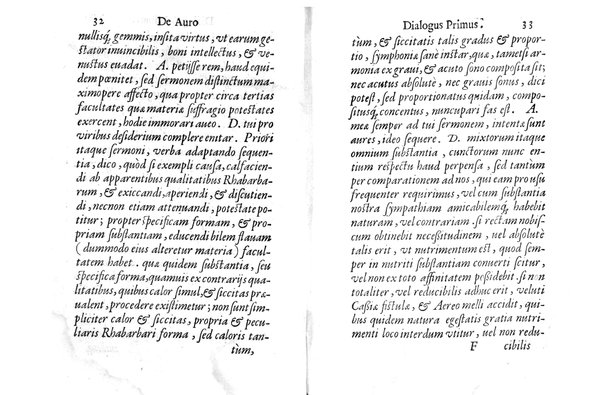 32 De Auro
nullisq́; gemmis, insita virtus, vt earum ge-
stator inuincibilis, boni intellectus, & ve-
nustus euadat. A. petijsse rem, haud equi-
dem pœnitet, sed sermonem distinctum ma-
ximopere affecto, qua propter circa tertias
facultates quæ materiæ suffragio potestates
exercent, hodie immorari aueo. D. tui pro
viribus desiderium complere enitar. Priori
itaque sermoni, verba adaptando sequen-
tia, dico, quòd si exempli causa, calfacien-
di ab apparentibus qualitatibus Rhabarba-
rum, & exiccandi, aperiendi, & discutien-
di, necnon etiam attenuandi, potestate po-
titur; propter specificam formam, & pro-
priam substantiam, educendi bilem flauam
(dummodo eius alteretur materia) facul-
tatem habet. quæ quidem substantia, seu
specifica forma, quamuis ex contrarijs qua-
litatibus, quibus calor simul, & siccitas præ-
ualent, procedere existimetur; non sunt sim-
pliciter calor & siccitas, propria & pecu-
liaris Rhabarbari forma, sed caloris tan-
tùm,
Dialogus Primus. 33
tùm, & siccitatis talis gradus & propor-
tio, symphoniæ sanè instar, quæ, tametsi ar-
monia ex graui, & acuto sono composita sit;
nec acutus absolutè, nec grauis sonus, dici
potest, sed proportionatus quidam, compo-
situsq́; concentus, nuncupari fas est. A.
meæ semper ad tui sermonem, intentæ sunt
aures, ideo sequere. D. mixtorum itaque
omnium substantia, cunctorum nunc en-
tium respectu haud perpensa, sed tantùm
per comparationem ad nos, qui eam pro usu
frequenter requirimus, vel cum substantia
nostra sympathiam amicabilemq́; habebit
naturam, vel contrariam. si rectam nobis-
cum obtinebit necessitudinem, ueb absolutè
talis erit, ut nutrimentum est, quod sem-
per in nutriti substantiam conuerti scitur,
vel non ex toto affinitatem possidebit. si non
totaliter, vel reducibilis adhuc erit, velut i
Cassiæ fistulæ, & Aereo melli accidit, qui-
bus quidem natura egestatis gratia nutri-
menti loco interdum vtitur, uel non redu-
F cibilis